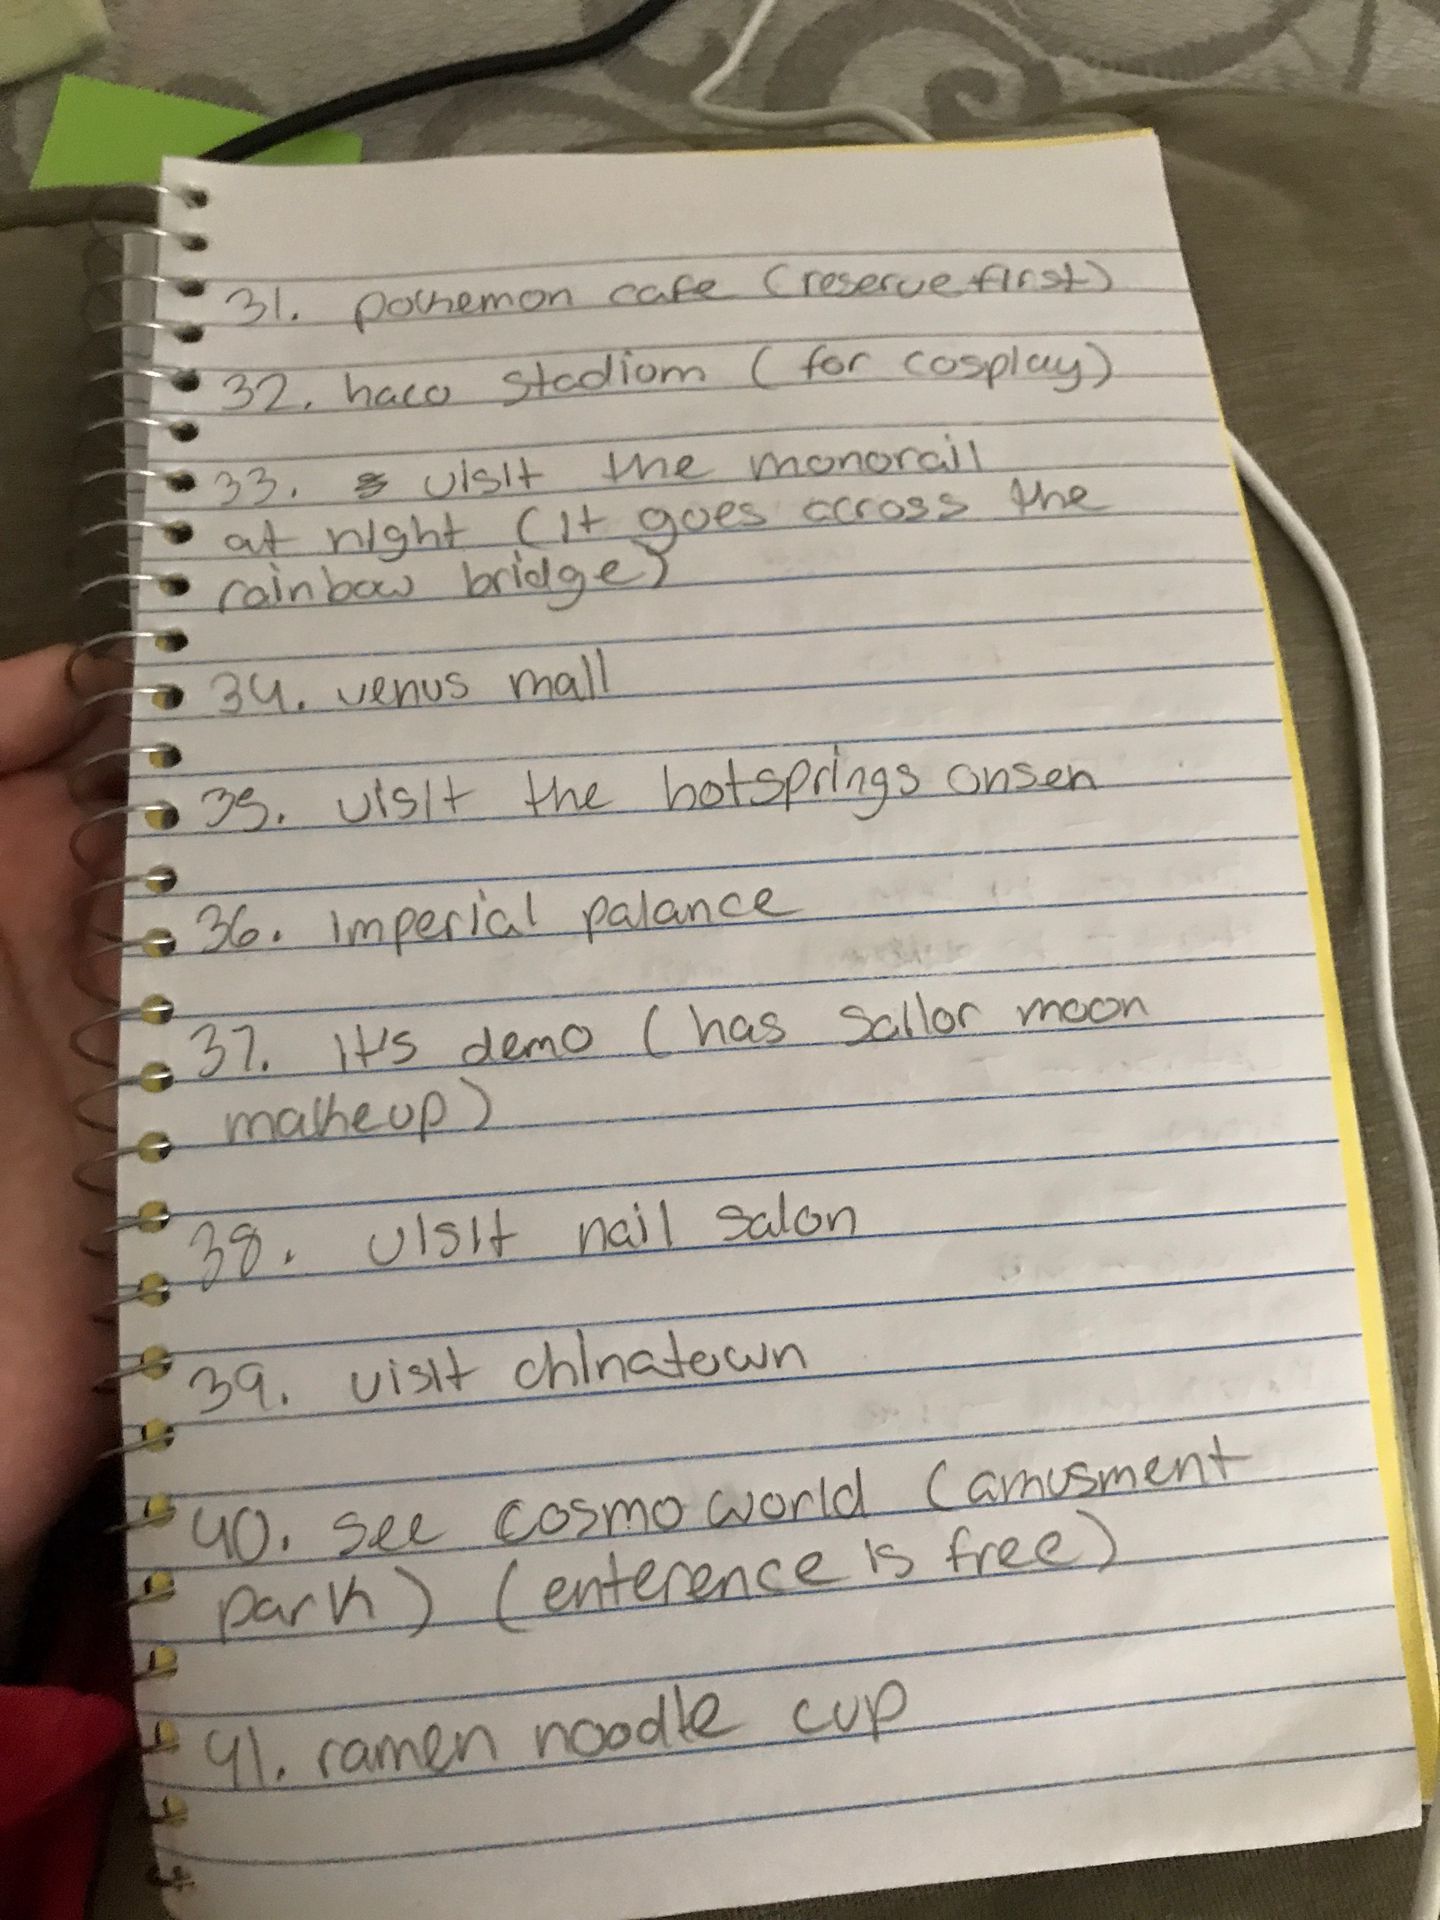 31. pokemon cafe (reserve first)
32. haco stadiom (for cosplay)
33. visit the monorail
at night (it goes across the
rainbow bridge)
34. venus mall
35. visit the hotsprings onsen
36. imperial palance
37. it's demo (has sailor moon
makeup)
38. visit nail salon
39. visit chinatown
40. see cosmo world (amusment
park) (enterence is free)
41. ramen noodle cup